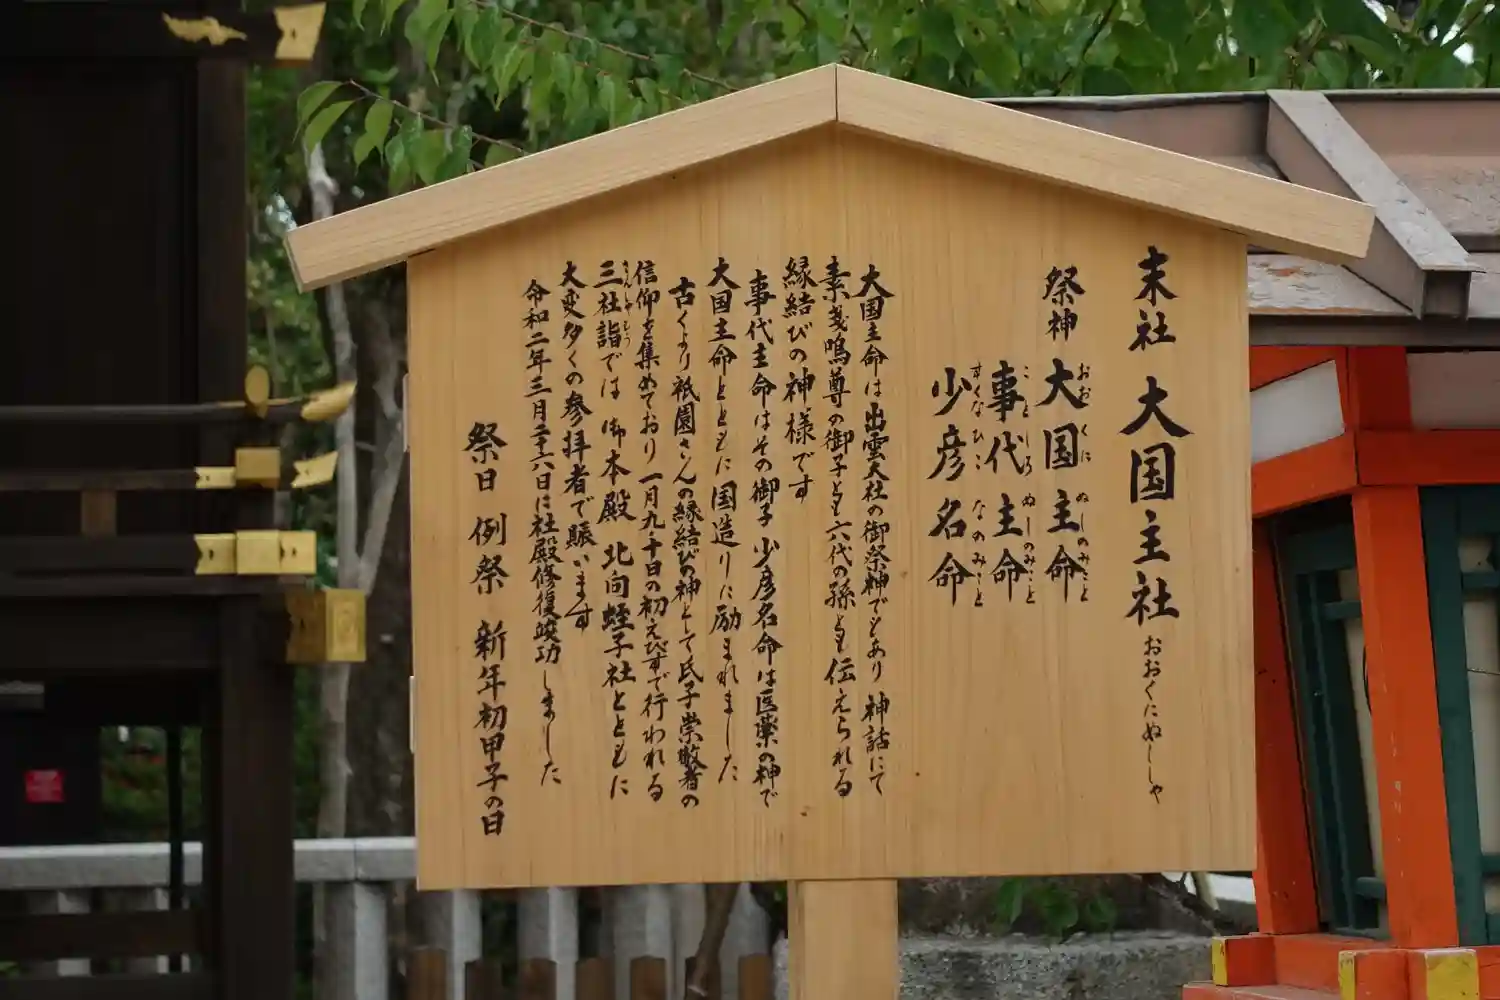 末社 大国主社 おおくにぬししゃ
祭神 大国主命 おおくに ぬしのみこと
事代主命 ことしろ ぬしのみこと
少彦名命 すくなひこ なのみこと
大国主命は出雲大社の御祭神でもあり 神話にて
素戔嗚尊の御子とも六代の孫とも伝えられる
縁結びの神様です
事代主命はその御子 少彦名命は医薬の神で
大国主命とともに国造りに励まれました
古くより祇園さんの縁結びの神として氏子崇敬者の
信仰を集めており 一月九・十日の初えびすで行われる
三社詣では 御本殿 北向蛭子社とともに
大変多くの参拝者で賑います
令和二年三月二十六日に社殿修復竣功しました
祭日 例祭 新年初甲子の日